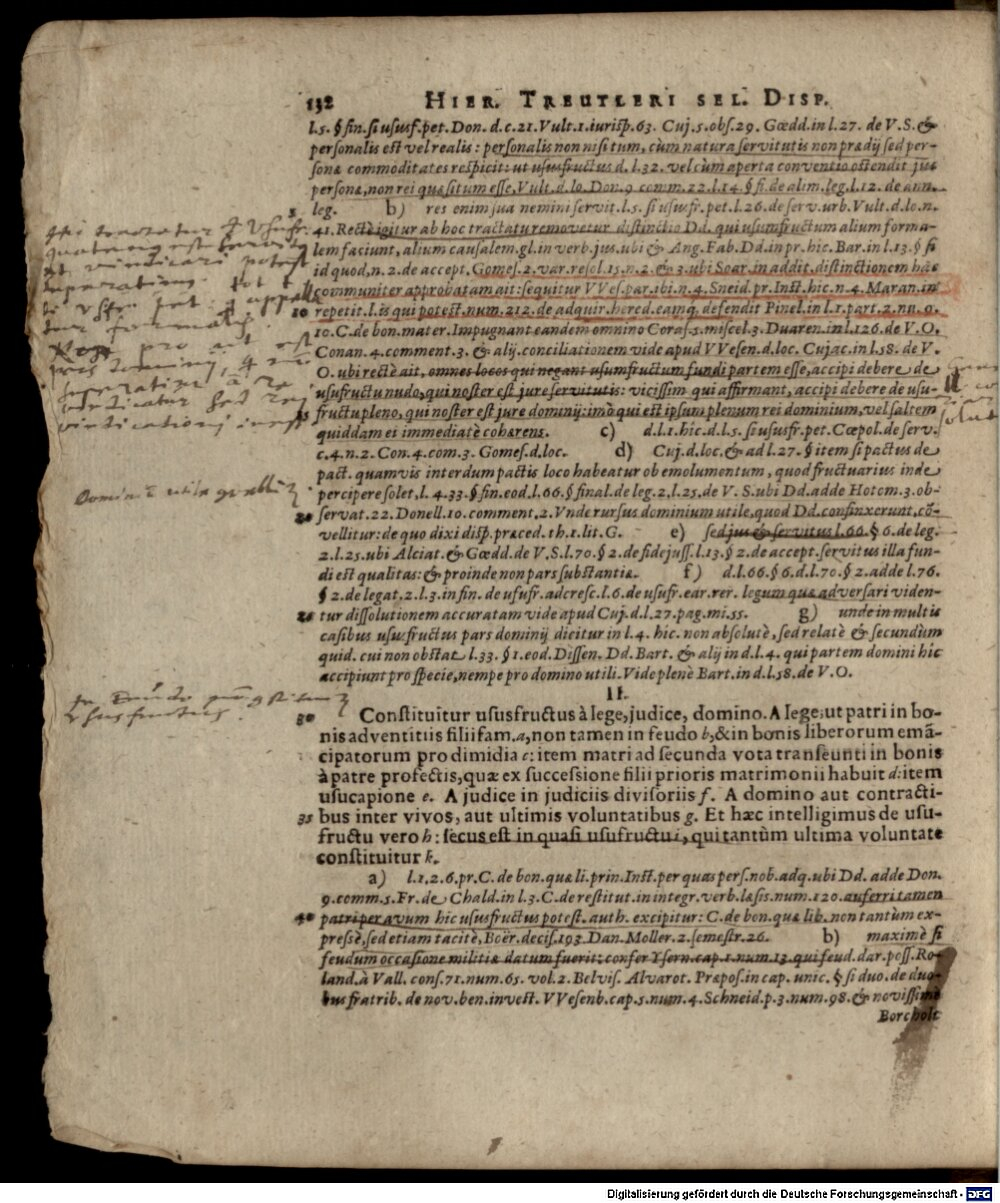 132 HIER. TREUTLERI SEL. DISP.
l.5. § fin. si ususf. pet. Don. d.c.21. Vult.1. iurisp. 63. Cuj.5.obs.29. Gœdd. in l.27. de V.S. &
personalis est vel realis: personalis non nisi tum, cùm natura servitutis non prædij sed per-
sonæ commoditates respicit: ut ususfructus d.l.32. vel cùm aperta conventio ostendit jus
personæ, non rei quæsitum esse, Vult. d.lo. Don. 9 comm. 22. l.14. § fi. de alim. leg. l.12. de ann.
leg. b) res enim sua nemini servit. l.5. si ususfr. pet. l.26. de serv. urb. Vult. d.lo. n.
41. Rectè igitur ab hoc tractatu removetur distinctio Dd. qui usumfructum alium forma-
lem faciunt, alium causalem. gl. in verb. jus. ubi & Ang. Fab. Dd. in pr. hic. Bar. in l.13. § si
id quod, n. 2. de accept. Gomes. 2. var. resol. 15. n. 2. & 3. ubi Soar. in addit. distinctionem hãc
communiter approbatam ait: sequitur VVes. par. ibi n. 4. Sneid. pr. Inst. hic. n. 4. Maran. in
10 repetit. l. is qui potest. num. 212. de adquir. hered. eamq; defendit Pinel. in l. 1. part. 2. nu. 9.
10. C. de bon. mater. Impugnant eandem omnino Coras. 5. miscel. 3. Duaren. in l. 126. de V. O.
Conan. 4. comment. 3. & alij. conciliationem vide apud VVesen. d. loc. Cujac. in l. 58. de V.
O. ubi rectè ait, omnes locos qui negant usumfructum fundi partem esse, accipi debere de
usufructu nudo, qui noster est jure servitutis: vicissim qui affirmant, accipi debere de usu-
fructu pleno, qui noster est jure dominij: imò qui est ipsum plenum rei dominium, vel saltem
quiddam ei immediatè cohærens. c) d.l.1. hic. d.l.5. si ususfr. pet. Cœpol. de serv.
c. 4. n. 2. Con. 4. com. 3. Gomes. d. loc. d) Cuj. d. loc. & ad l. 27. § item si pactus de
pact. quamvis interdum pactis loco habeatur ob emolumentum, quod fructuarius inde
percipere solet, l. 4. 33. § fin. eod. l. 66. § final. de leg. 2. l. 25. de V. S. ubi Dd. adde Hotom. 3. ob-
20 servat. 22. Donell. 10. comment, 2. Vnde rursus dominium utile, quod Dd. confinxerunt, cõ-
vellitur: de quo dixi disp. præced. th. 1. lit. G. e) sed jus & servitus l. 66. § 6. de leg.
2. l. 25. ubi Alciat. & Gœdd. de V. S. l. 70. § 2. de fidejuss. l. 13. § 2. de accept. servitus illa fun-
di est qualitas: & proinde non pars substantiæ. f) d. l. 66. § 6. d. l. 70. § 2. adde l. 76.
§ 2. de legat. 2. l. 3. in fin. de usufr. adcresc. l. 6. de usufr. ear. rer. legum quæ adversari viden-
25 tur dissolutionem accuratam vide apud Cuj. d. l. 27. pag. mi. 55. g) unde in multis
casibus ususfructus pars dominij dicitur in l. 4. hic. non absolutè, sed relatè & secundùm
quid. cui non obstat l. 33. § 1. eod. Dissen. Dd. Bart. & alij in d. l. 4. qui partem domini hic
accipiunt pro specie, nempe pro domino utili. Vide plenè Bart. in d. l. 58. de V. O.
II.
30 Constituitur ususfructus à lege, judice, domino. A lege: ut patri in bo-
nis adventitiis filiifam. a, non tamen in feudo b, & in bonis liberorum emã-
cipatorum pro dimidia c: item matri ad secunda vota transeunti in bonis
à patre profectis, quæ ex successione filii prioris matrimonii habuit d: item
usucapione e. A judice in judiciis divisoriis f. A domino aut contracti-
35 bus inter vivos, aut ultimis voluntatibus g. Et hæc intelligimus de usu-
fructu vero h: secus est in quasi usufructui, qui tantùm ultima voluntate
constituitur k.
a) l.1.2.6. pr. C. de bon. quæ li. prin. Inst. per quas pers. nob. adq. ubi Dd. adde Don.
9. comm. 5. Fr. de Chald. in l. 3. C. de restitut. in integr. verb. læsis. num. 120. auferri tamen
40 patri per avum hic ususfructus potest. auth. excipitur: C. de ben. quæ lib. non tantùm ex-
pressè, sed etiam tacitè, Boër. decis. 193. Dan. Moller. 2. semestr. 26. b) maximè si
feudum occasione militiæ datum fuerit: confer Ysern. cap. 1. num. 13. qui feud. dar. poss. Ro-
land. à Vall. cons. 71. num. 65. vol. 2. Belvis. Alvarot. Præpos. in cap. unic. § si duo. de duo-
bus fratrib. de nov. ben. invest. VVesenb. cap. 5. num. 4. Schneid. p. 3. num. 98. & novissimè
Borcholt
Digitalisierung gefördert durch die Deutsche Forschungsgemeinschaft - DFG